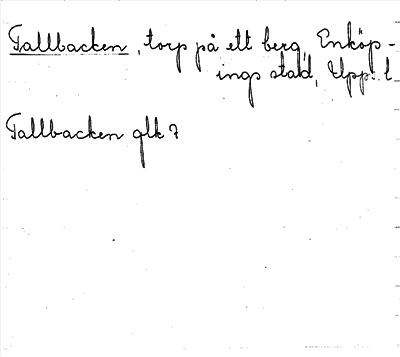 Tallbacken, torp på ett berg, Enköp-
ings stad, Upp. l
Tallbacken glk 7